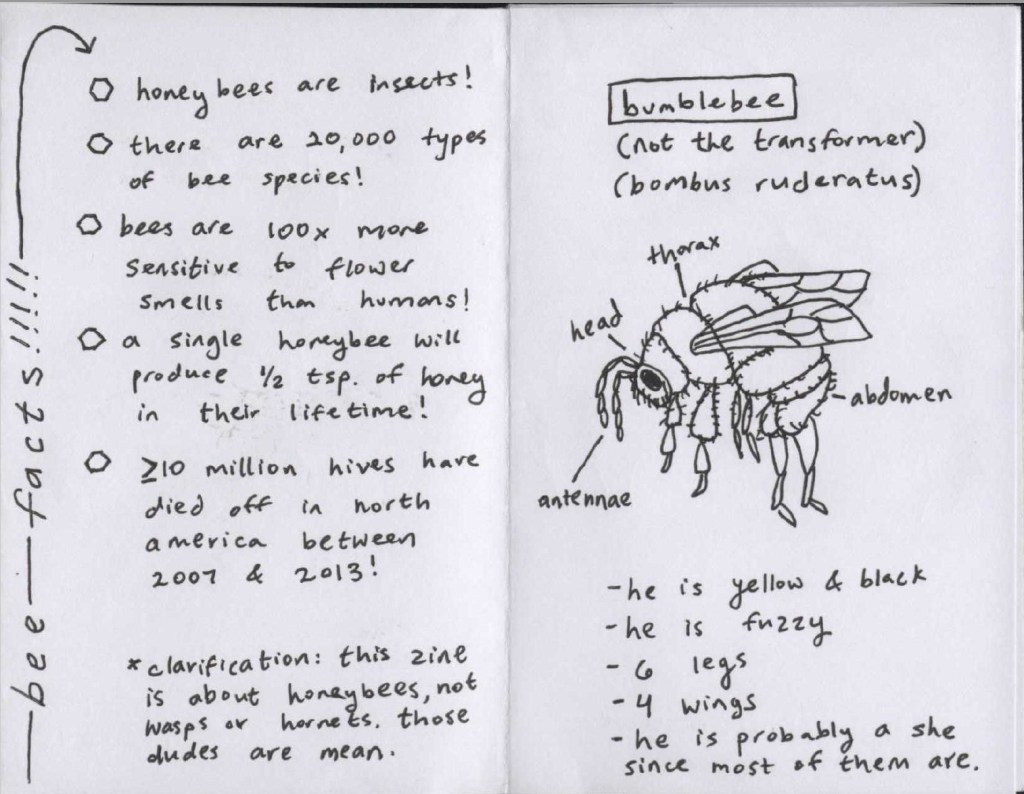 bee facts!!!!!
honeybees are insects!
there are 20,000 types
of bee species!
bees are 100x more
sensitive to flower
smells than humans!
a single honeybee will
produce 1/2 tsp. of honey
in their lifetime!
≥10 million hives have
died off in north
america between
2007 & 2013!
*clarification: this zine
is about honeybees, not
wasps or hornets. those
dudes are mean.
bumblebee
(not the transformer)
(bombus ruderatus)
thorax
head
abdomen
antennae
-he is yellow & black
-he is fuzzy
- 6 legs
- 4 wings
-he is probably a she
since most of them are.